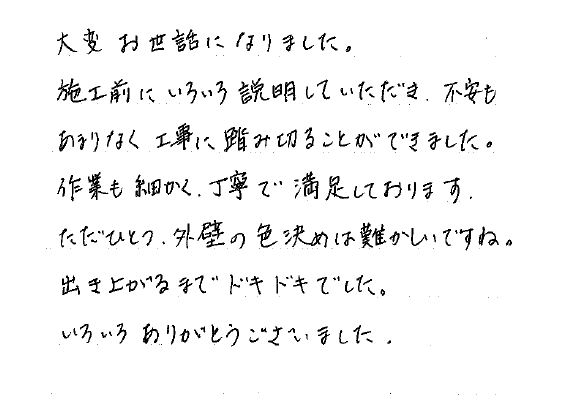 大変 お世話に なりました。
施工前に いろいろ 説明していただき、不安も
あまりなく 工事に 踏み切ることができました。
作業も 細かく、丁寧で 満足しております。
ただひとつ、外壁の 色決めは難かしいですね。
出き上がるまで ドキドキでした。
いろいろ ありがとうございました。